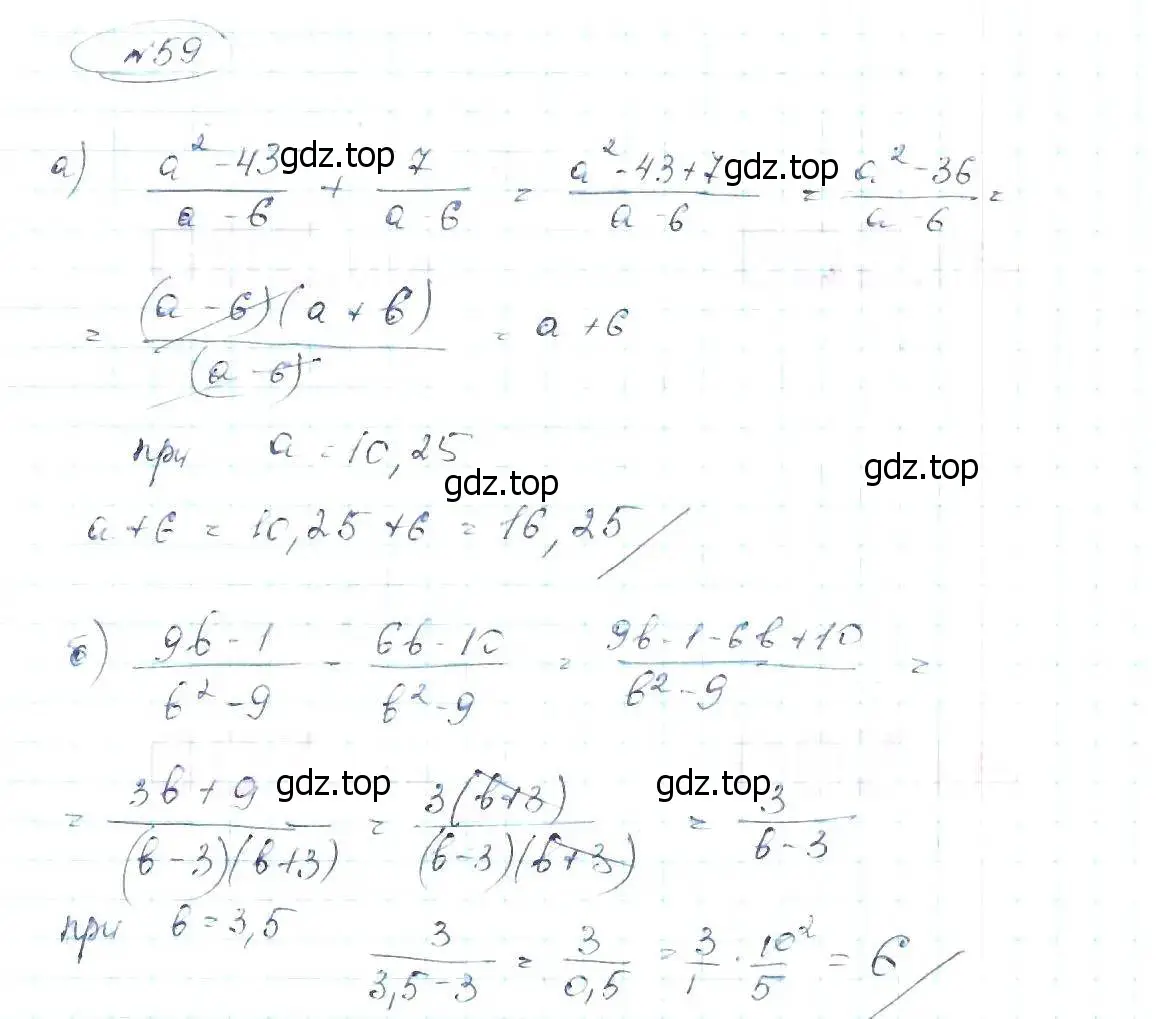 №59
а) (a² - 43)/(a - 6) + 7/(a - 6) = (a² - 43 + 7)/(a - 6) = (a² - 36)/(a - 6) =
gdz.top gdz.top
= (a - 6)(a + 6)/(a - 6) = a + 6
при a = 10,25
gdz.top gdz.top
a + 6 = 10,25 + 6 = 16,25
б) (9b - 1)/(b² - 9) - (6b - 10)/(b² - 9) = (9b - 1 - 6b + 10)/(b² - 9) =
= (3b + 9)/((b - 3)(b + 3)) = 3(b + 3)/((b - 3)(b + 3)) = 3/(b - 3)
gdz.top gdz.top
при b = 3,5 3/(3,5 - 3) = 3/0,5 = 3/1 · 10²/5 = 6